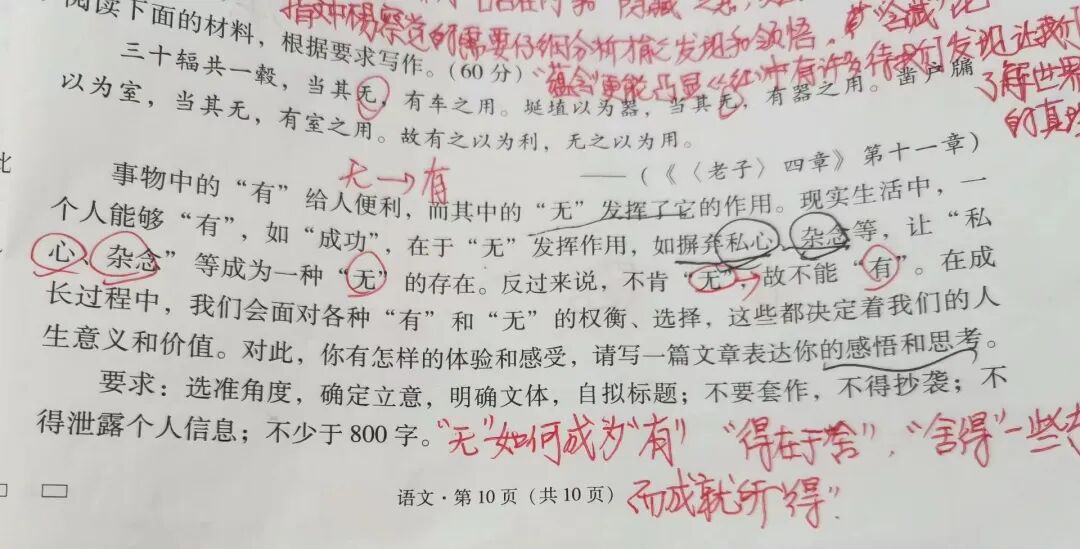 指文中杨绛觉的需要仔细分析才能发现和领悟，
"蕴含"更能凸显《红》中有许多待我们发现让我们
了解世界
的真
阅读下面的材料，根据要求写作。（60 分）
三十辐共一毂，当其无，有车之用。埏埴以为器，当其无，有器之用。凿户牖
以为室，当其无，有室之用。故有之以为利，无之以为用。
——（《〈老子〉四章》第十一章）
无→有
事物中的“有”给人便利，而其中的“无”发挥了它的作用。现实生活中，一
个人能够“有”，如“成功”，在于“无”发挥作用，如摒弃私心、杂念等，让“私
心、杂念”等成为一种“无”的存在。反过来说，不肯“无”，故不能“有”。在成
长过程中，我们会面对各种“有”和“无”的权衡、选择，这些都决定着我们的人
生意义和价值。对此，你有怎样的体验和感受，请写一篇文章表达你的感悟和思考。
要求：选准角度，确定立意，明确文体，自拟标题；不要套作，不得抄袭；不
得泄露个人信息；不少于 800 字。
"无"如何成为"有" "得在于舍"，"舍得"一些
而成就所"得"
语文·第 10 页（共 10 页）